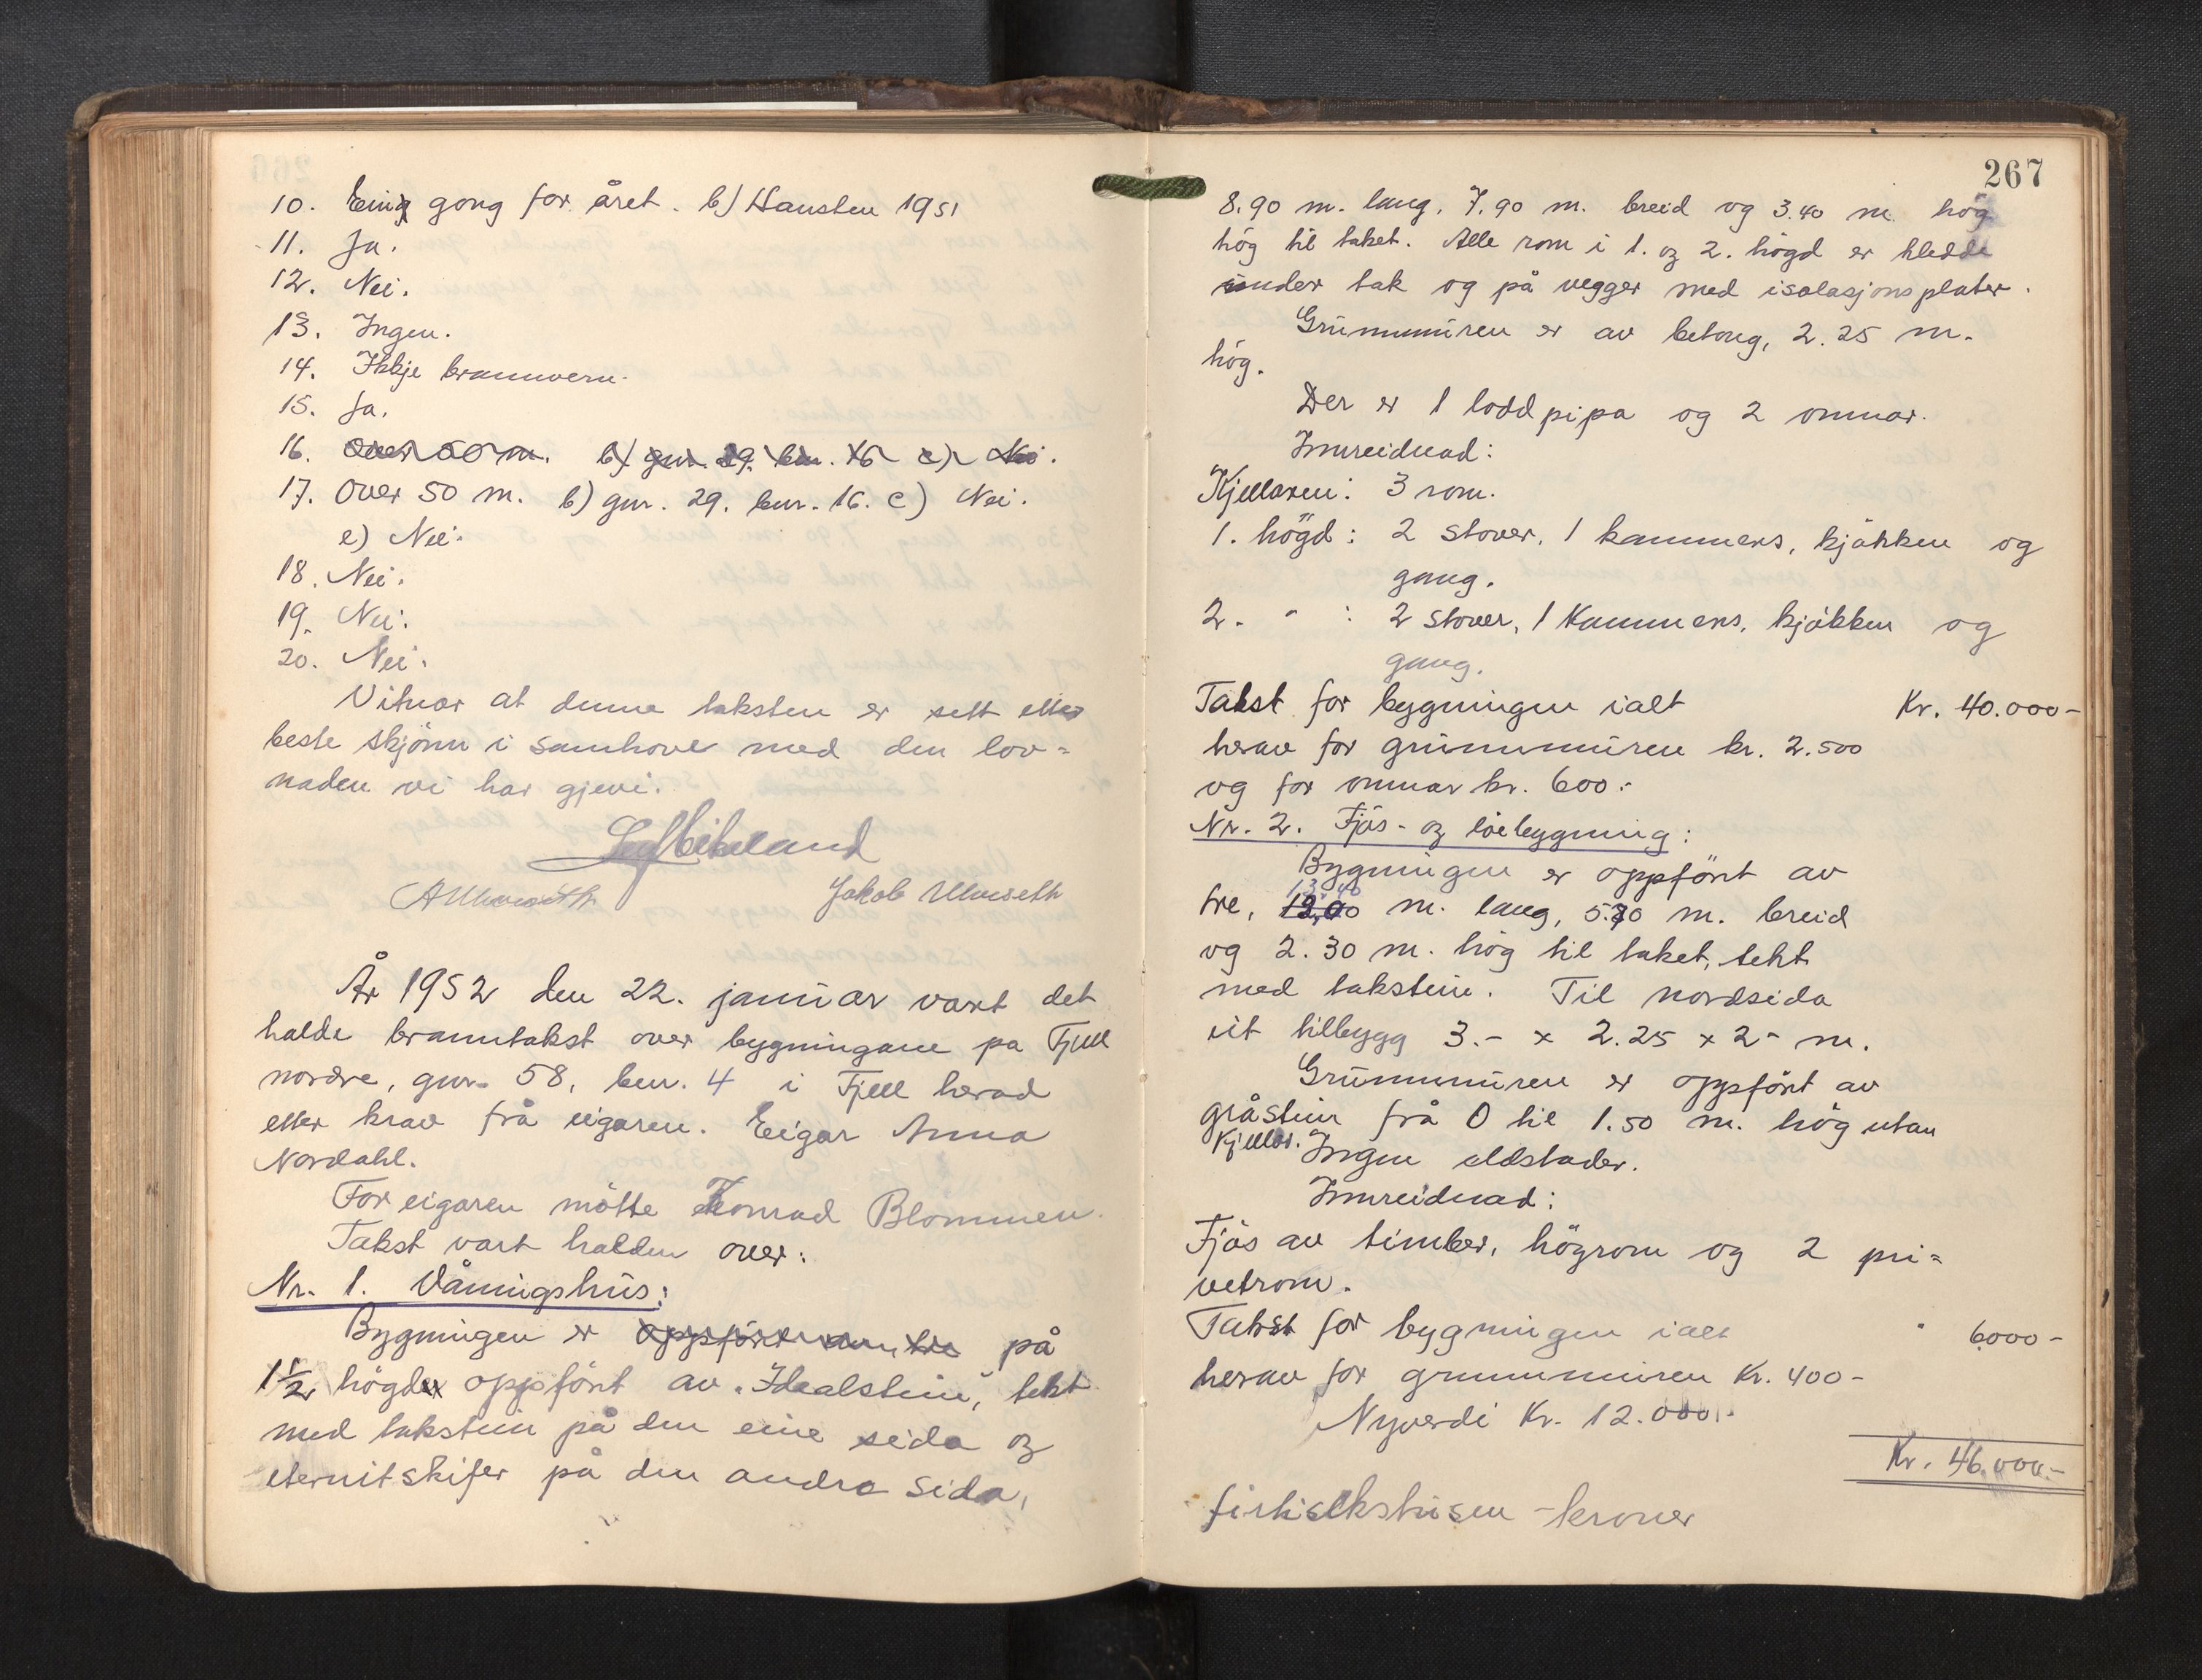 10. Eing gong for året. b) Hausten 1951
11. Ja.
12. Nei.
13. Ingen.
14. Ikkje brannvern.
15. Ja.
16. Over 50 m. b) gnr. 29. bnr. 16 c) Nei.
17. Over 50 m. b) gnr. 29. bnr. 16. c) Nei.
e) Nei.
18. Nei.
19. Nei.
20. Nei.
Vitnar at denne taksten er sett etter
beste skjönn i samhove med den lov=
naden vi har gjevi.
Jakob Ulveseth
År 1952 den 22. januar vart det
halde branntakst over bygningane på Fjell
nordre, gnr. 58, bnr. 4 i Fjell herad
etter krav frå eigaren. Eigar Anna
Nordahl.
For eigaren møtte Konrad Blommen.
Takst vart halden over:
Nr. 1. Våningshus:
Bygningen er oppfört av tre på
1½ högder oppfört av "Idealstein", tekt
med takstein på den eine sida og
eternitskifer på den andra sida,
267
8.90 m. lang, 7.90 m. breid og 3.40 m hög
hög til taket. Alle rom i 1. og 2. högd er kledde
under tak og på vegger med isolasjonsplater.
Grunnmuren er av betong, 2.25 m.
hög.
Der er 1 loddpipa og 2 omnar.
Innreidnad:
Kjellaren: 3 rom.
1. högd: 2 stover, 1 kammers, kjökken og
gang.
2. " : 2 stover, 1 kammers, kjökken og
gang.
Takst for bygningen ialt Kr. 40.000-
herav for grunnmuren kr. 2.500
og for omnar kr. 600.-
Nr. 2. Fjös- og löebygning:
Bygningen er oppfört av
13.40
tre, m. lang, 5.70 m. breid
og 2.30 m. hög til taket, tekt
med takstein. Til nordsida
eit tilbygg 3.- x 2.25 x 2- m.
Grunnmuren er oppfört av
gråstein frå 0 til 1.50 m. hög utan
kjellar. Ingen eldstader.
Innreidnad:
Fjös av timber, högrom og 2 pri=
vetrom.
Takst for bygningen ialt " 6000-
herav for grunnmuren Kr. 400-
Nyverdi Kr. 12.000.-
Kr. 46.000.-
førtisekstusen -kroner